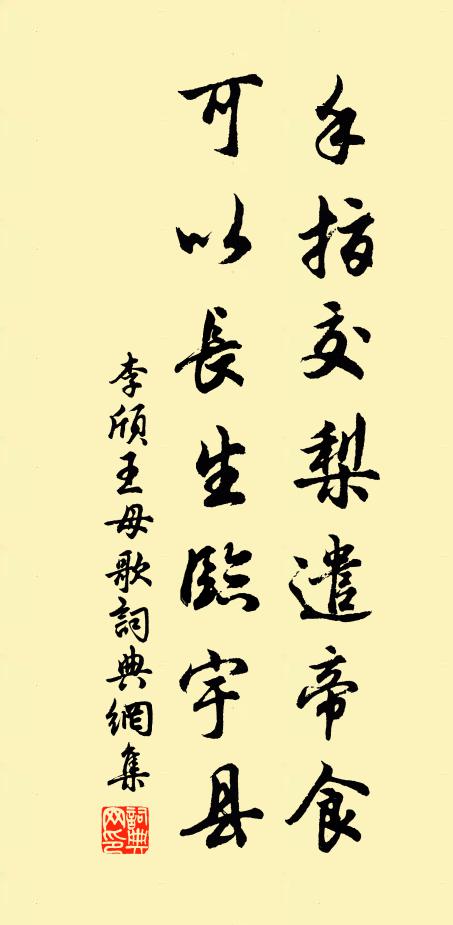 手指交梨遣帝食
可以長生臨宇县
李頎王母歌詞典網集
詞典网印